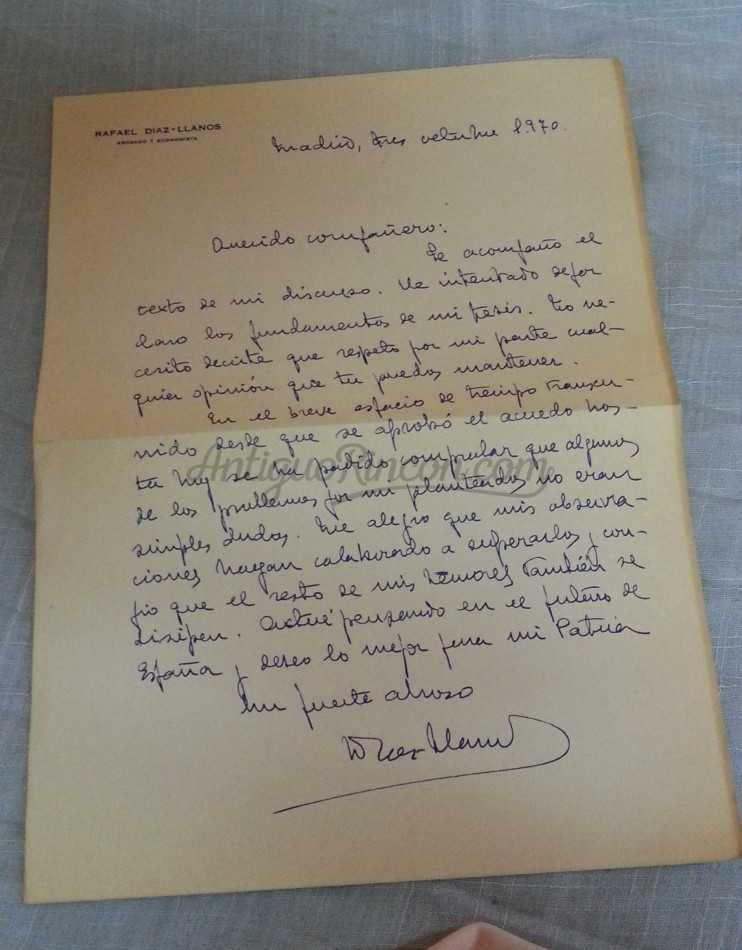 RAFAEL DIAZ-LLANOS
ABOGADO Y ECONOMISTA
Madrid, tres octubre 1.970.
Querido compañero:
Te acompaño el
texto de mi discurso. He intentado dejar
claro los fundamentos de mi tesis. No ne-
cesito decirte que respeto por mi parte cual-
quier opinión que tu puedas mantener.
En el breve espacio de tiempo transcu-
rrido desde que se aprobó el acuerdo has-
ta hoy se ha podido comprobar que algunos
de los problemas por mi planteados no eran
simples dudas. Me alegro que mis observa-
ciones hayan colaborado a superarlos y con-
fio que el resto de mis temores también se
disipen. Actué pensando en el futuro de
España y deseo lo mejor para mi Patria
Un fuerte abrazo
Diaz-Llanos
AntiguoRincon.com